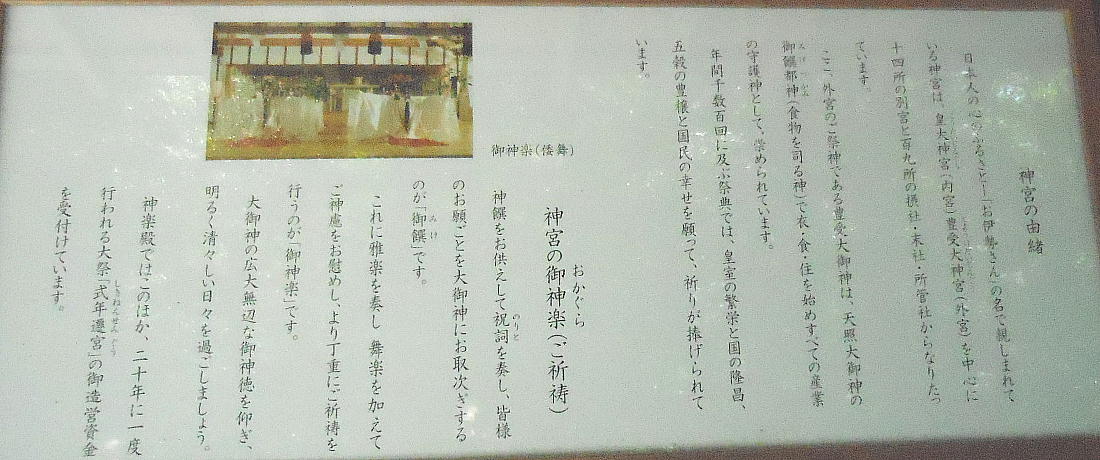 神宮の由緒
日本人の心のふるさと―「お伊勢さん」の名で親しまれて
いる神宮は、皇大神宮(内宮)豊受大神宮(外宮)を中心に
十四所の別宮と百九所の摂社・末社・所管社からなりたっ
ています。
ここ、外宮のご祭神である豊受大御神は、天照大御神の
御饌都神(食物を司る神)で衣・食・住を始めすべての産業
の守護神として、崇められています。
年間千数百回に及ぶ祭典では、皇室の繁栄と国の隆昌、
五穀の豊穣と国民の幸せを願って、祈りが捧げられて
います。
御神楽(倭舞)
神宮の御神楽(ご祈祷)
おかぐら
神饌をお供えして祝詞を奏し、皆様
のりと
のお願ごとを大御神にお取次ぎする
のが「御饌」です。
みけ
これに雅楽を奏し舞楽を加えて
ご神慮をお慰めし、より丁重にご祈祷を
行うのが「御神楽」です。
大御神の広大無辺な御神徳を仰ぎ、
明るく清々しい日々を過ごしましょう。
神楽殿ではこのほか、二十年に一度
行われる大祭「式年遷宮」の御造営資金
しきねんせんぐう
を受付けています。